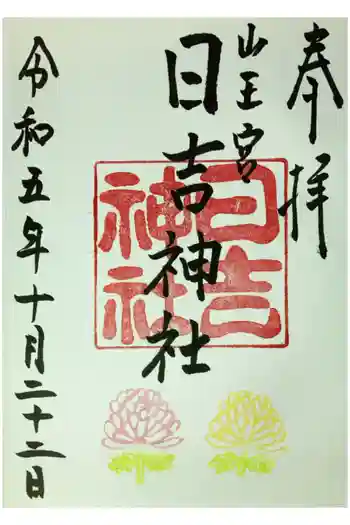 奉拝
山王宮
日吉神社
日吉
神社
令和五年十月二十二日